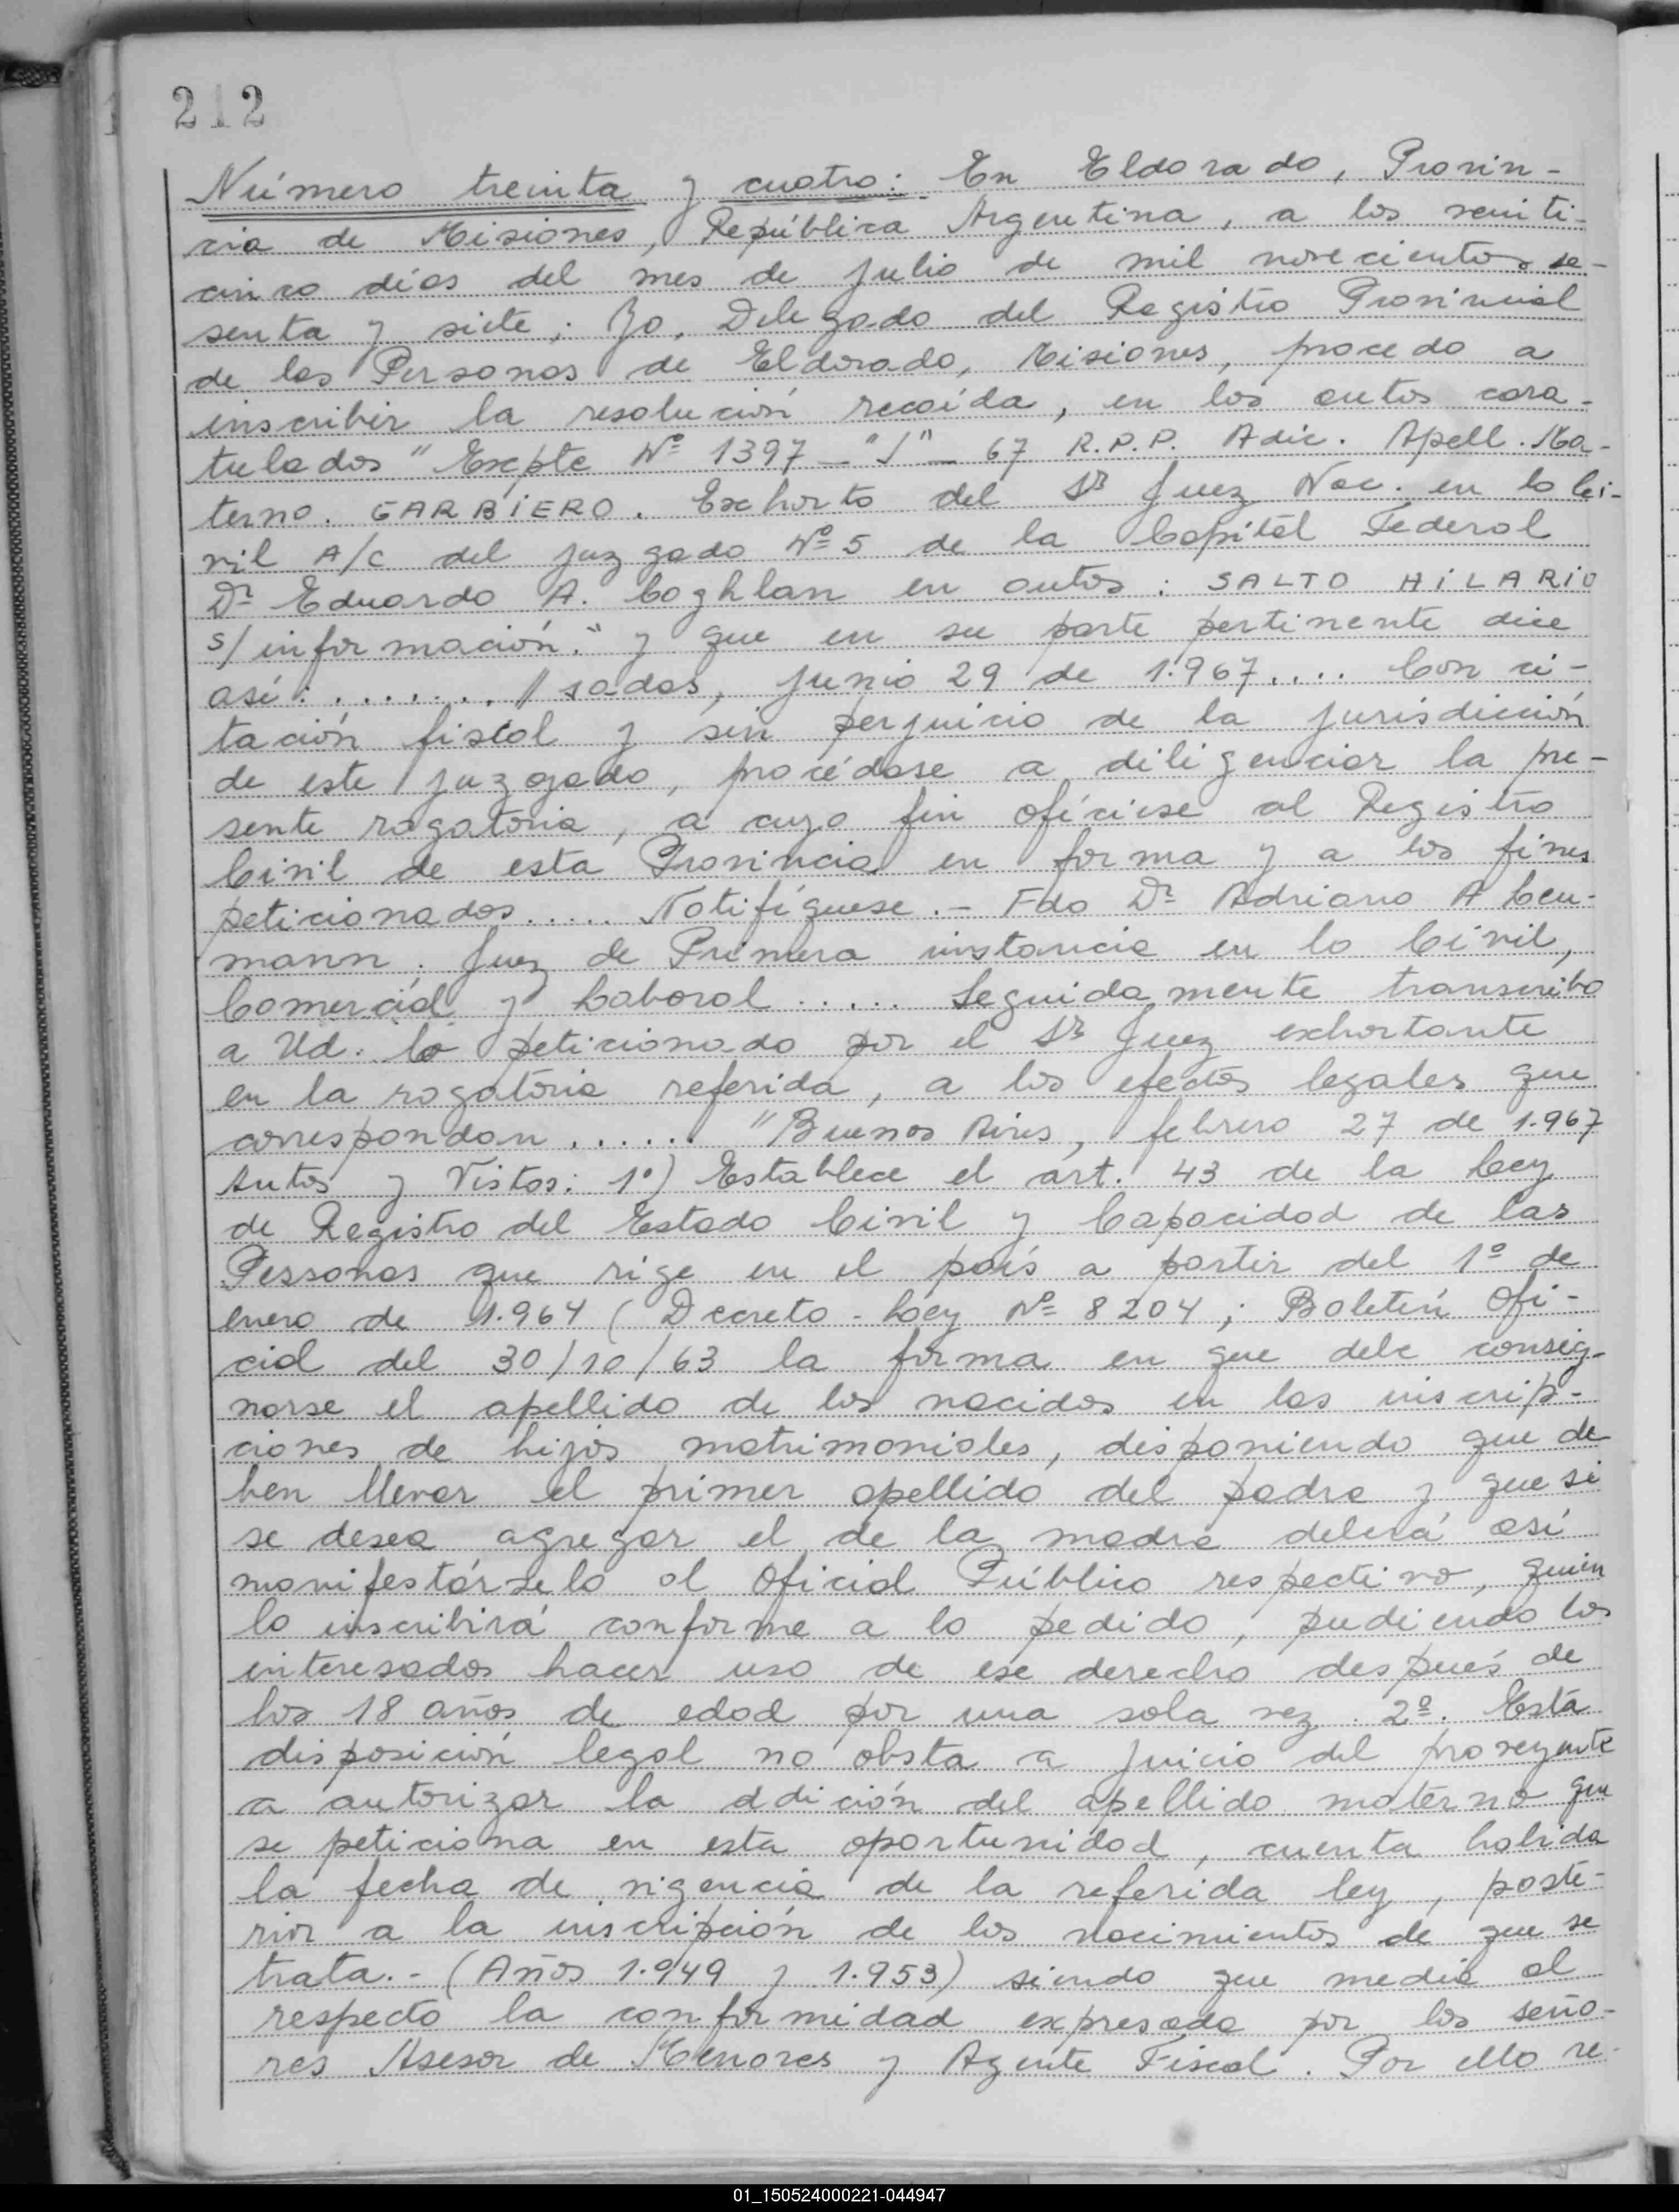 212
Número treinta y cuatro: En Eldorado, Provin-
cia de Misiones, República Argentina, a los veinti-
cinco días del mes de julio de mil novecientos se-
senta y siete; Yo, Delegado del Registro Provincial
de las Personas de Eldorado, Misiones, procedo a
inscribir la resolución recaída, en los autos cara-
tulados "Expte Nº 1397 - "J" - 67 R.P.P. Adic. Apell. Ma-
terno. GARBIERO. Exhorto del Sr Juez Nac. en lo Ci-
vil A/C del juzgado Nº 5 de la Capital Federal
Dr Eduardo A. Coghlan en autos: SALTO HILARIO
s/información." y que en su parte pertinente dice
así: ........ //sadas, junio 29 de 1.967.... Con ci-
tación fiscal y sin perjuicio de la jurisdicción
de este juzgado, procédase a diligenciar la pre-
sente rogatoria, a cuyo fin ofíciese al Registro
Civil de esta Provincia en forma y a los fines
peticionados..... Notifíquese.- Fdo Dr Adriano A Leu-
mann. Juez de Primera instancia en lo Civil,
Comercial y Laboral ..... Seguidamente transcribo
a Ud. lo peticionado por el Sr Juez exhortante
en la rogatoria referida, a los efectos legales que
correspondan ...... "Buenos Aires, febrero 27 de 1.967
Autos y Vistos: 1º) Establece el art. 43 de la Ley
de Registro del Estado Civil y Capacidad de las
Personas que rige en el país a partir del 1º de
enero de 1.964 (Decreto-Ley Nº 8204; Boletín Ofi-
cial del 30/10/63 la forma en que debe consig-
narse el apellido de los nacidos en las inscrip-
ciones de hijos matrimoniales, disponiendo que de
ben llevar el primer apellido del padre y que si
se desea agregar el de la madre deberá así
manifestárselo al Oficial Público respectivo, quien
lo inscribirá conforme a lo pedido, pudiendo los
interesados hacer uso de ese derecho después de
los 18 años de edad por una sola vez. 2º. Esta
disposición legal no obsta a juicio del proveyente
a autorizar la adición del apellido materno que
se peticiona en esta oportunidad, cuenta habida
la fecha de vigencia de la referida ley, poste-
rior a la inscripción de los nacimientos de que se
trata.- (Años 1.949 y 1.953) siendo que media al
respecto la conformidad expresada por los seño-
res Asesor de Menores y Agente Fiscal. Por ello re-
01_150524000221-044947